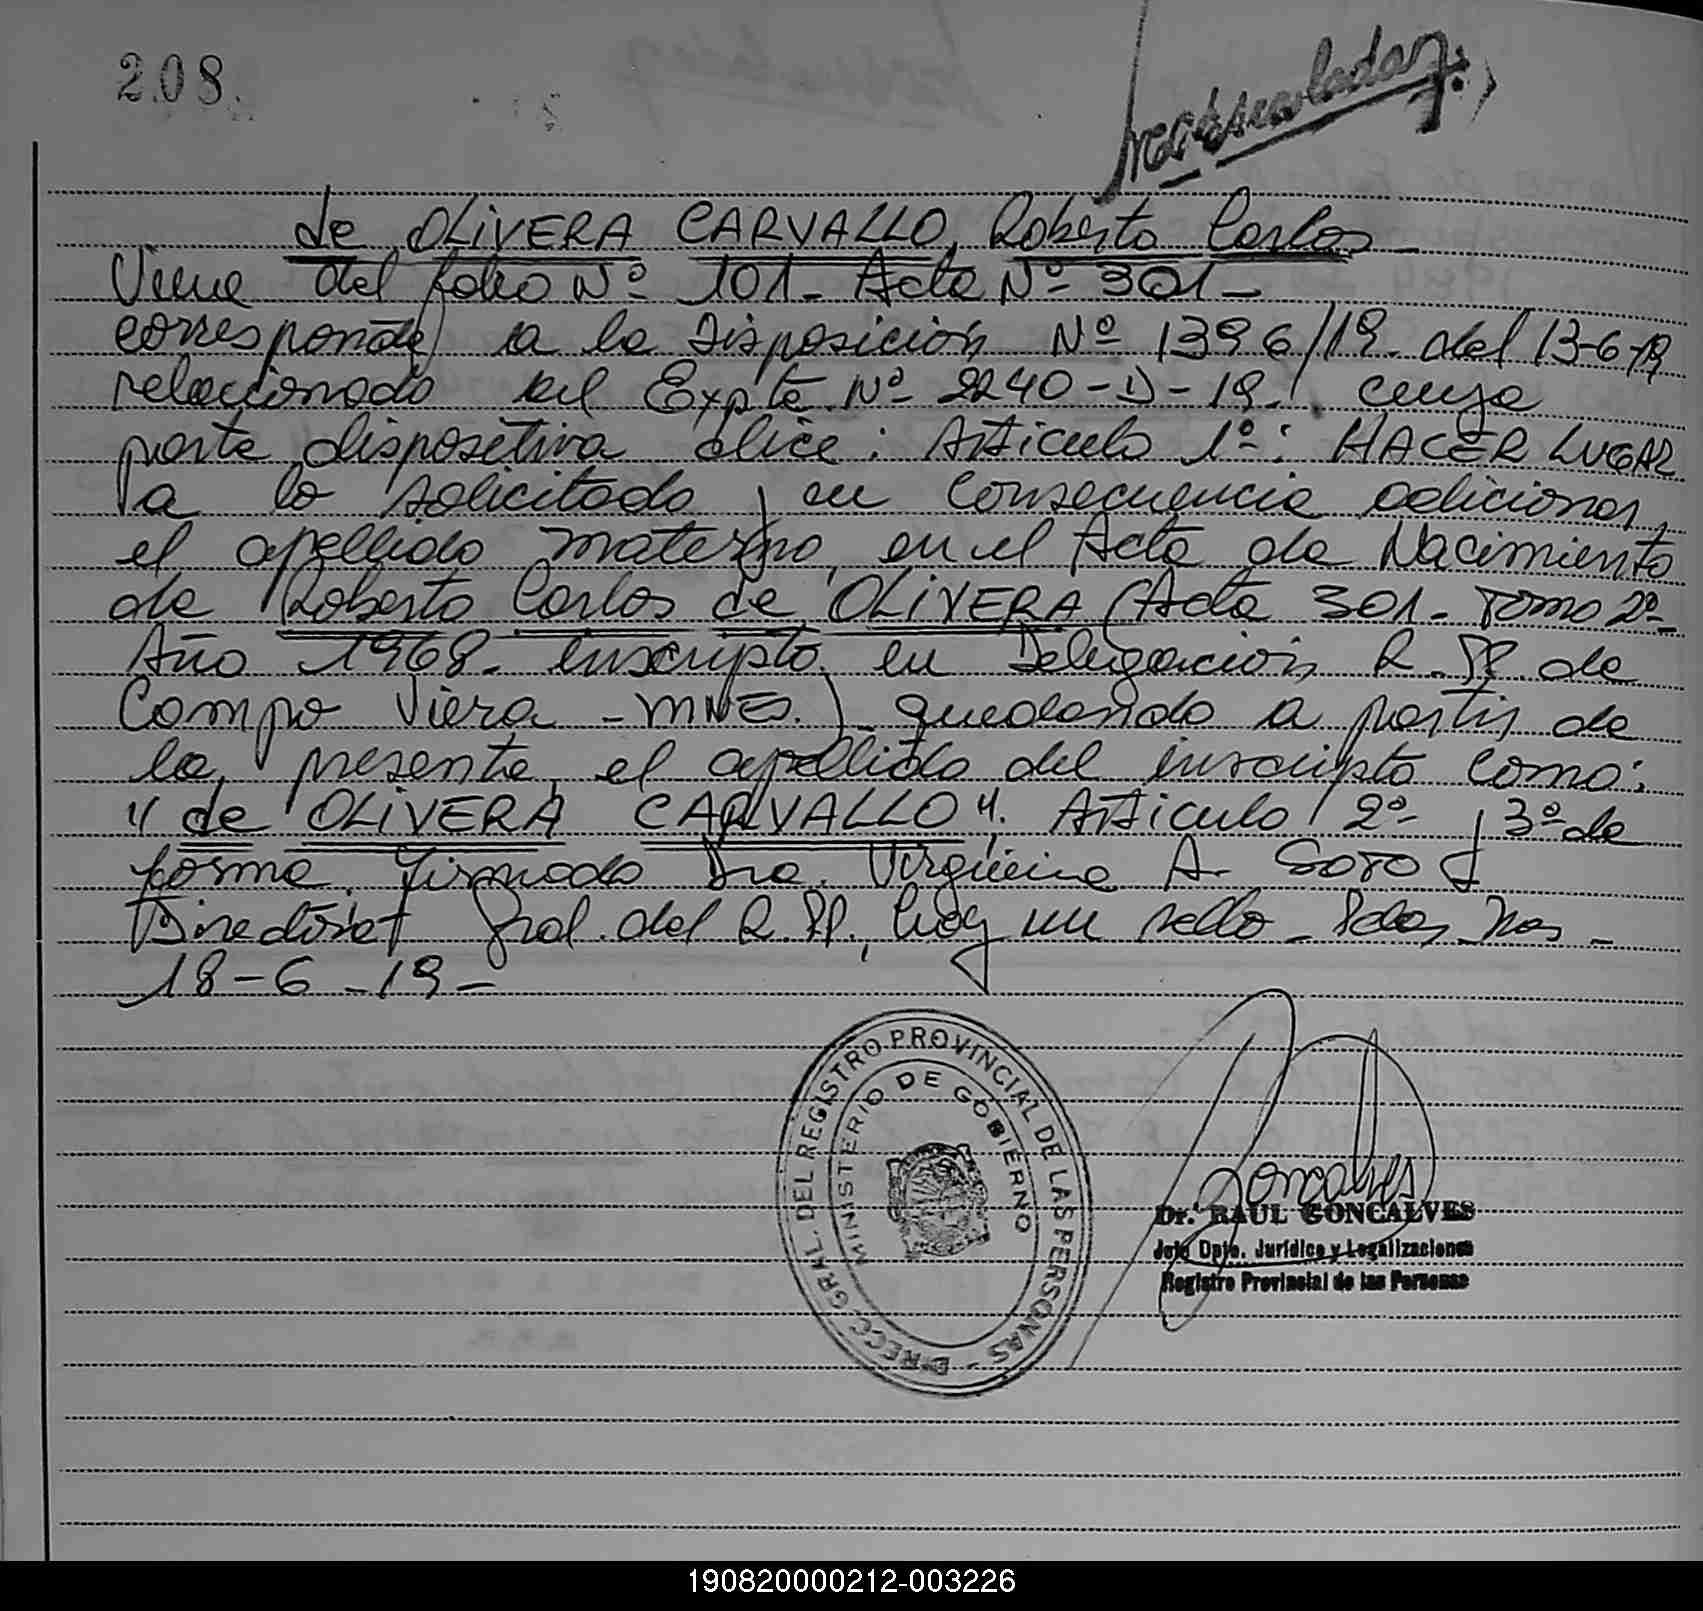 208.
de OLIVERA CARVALLO, Roberto Carlos
Viene del folio Nº 101 - Acta Nº 301 -
corresponde a la Disposición Nº 1396/19 - del 13-6-19
relacionado al Expte Nº 2240-D-19. cuya
parte dispositiva dice: Artículo 1º: HACER LUGAR
a lo solicitado y en consecuencia adicionar,
el apellido materno, en el Acta de Nacimiento
de Roberto Carlos de OLIVERA (Acta 301 - Tomo 2º -
Año 1968 - inscripto en Delegación R.P.P. de
Campo Viera - MNES.) quedando a partir de
la presente, el apellido del inscripto como:
"de OLIVERA CARVALLO". Artículo 2º y 3º de
forma. Firmado Dra. Virginia A. Soto
Directora Gral. del R.P.P., hay un sello - Pdas, Mnes -
18-6-19 -
DIRECC. GRAL. DEL REGISTRO PROVINCIAL DE LAS PERSONAS -
MINISTERIO DE GOBIERNO
Goncalves
Dr. RAUL GONCALVES
Jefe Dpto. Jurídico y Legalizaciones
Registro Provincial de las Personas
190820000212-003226